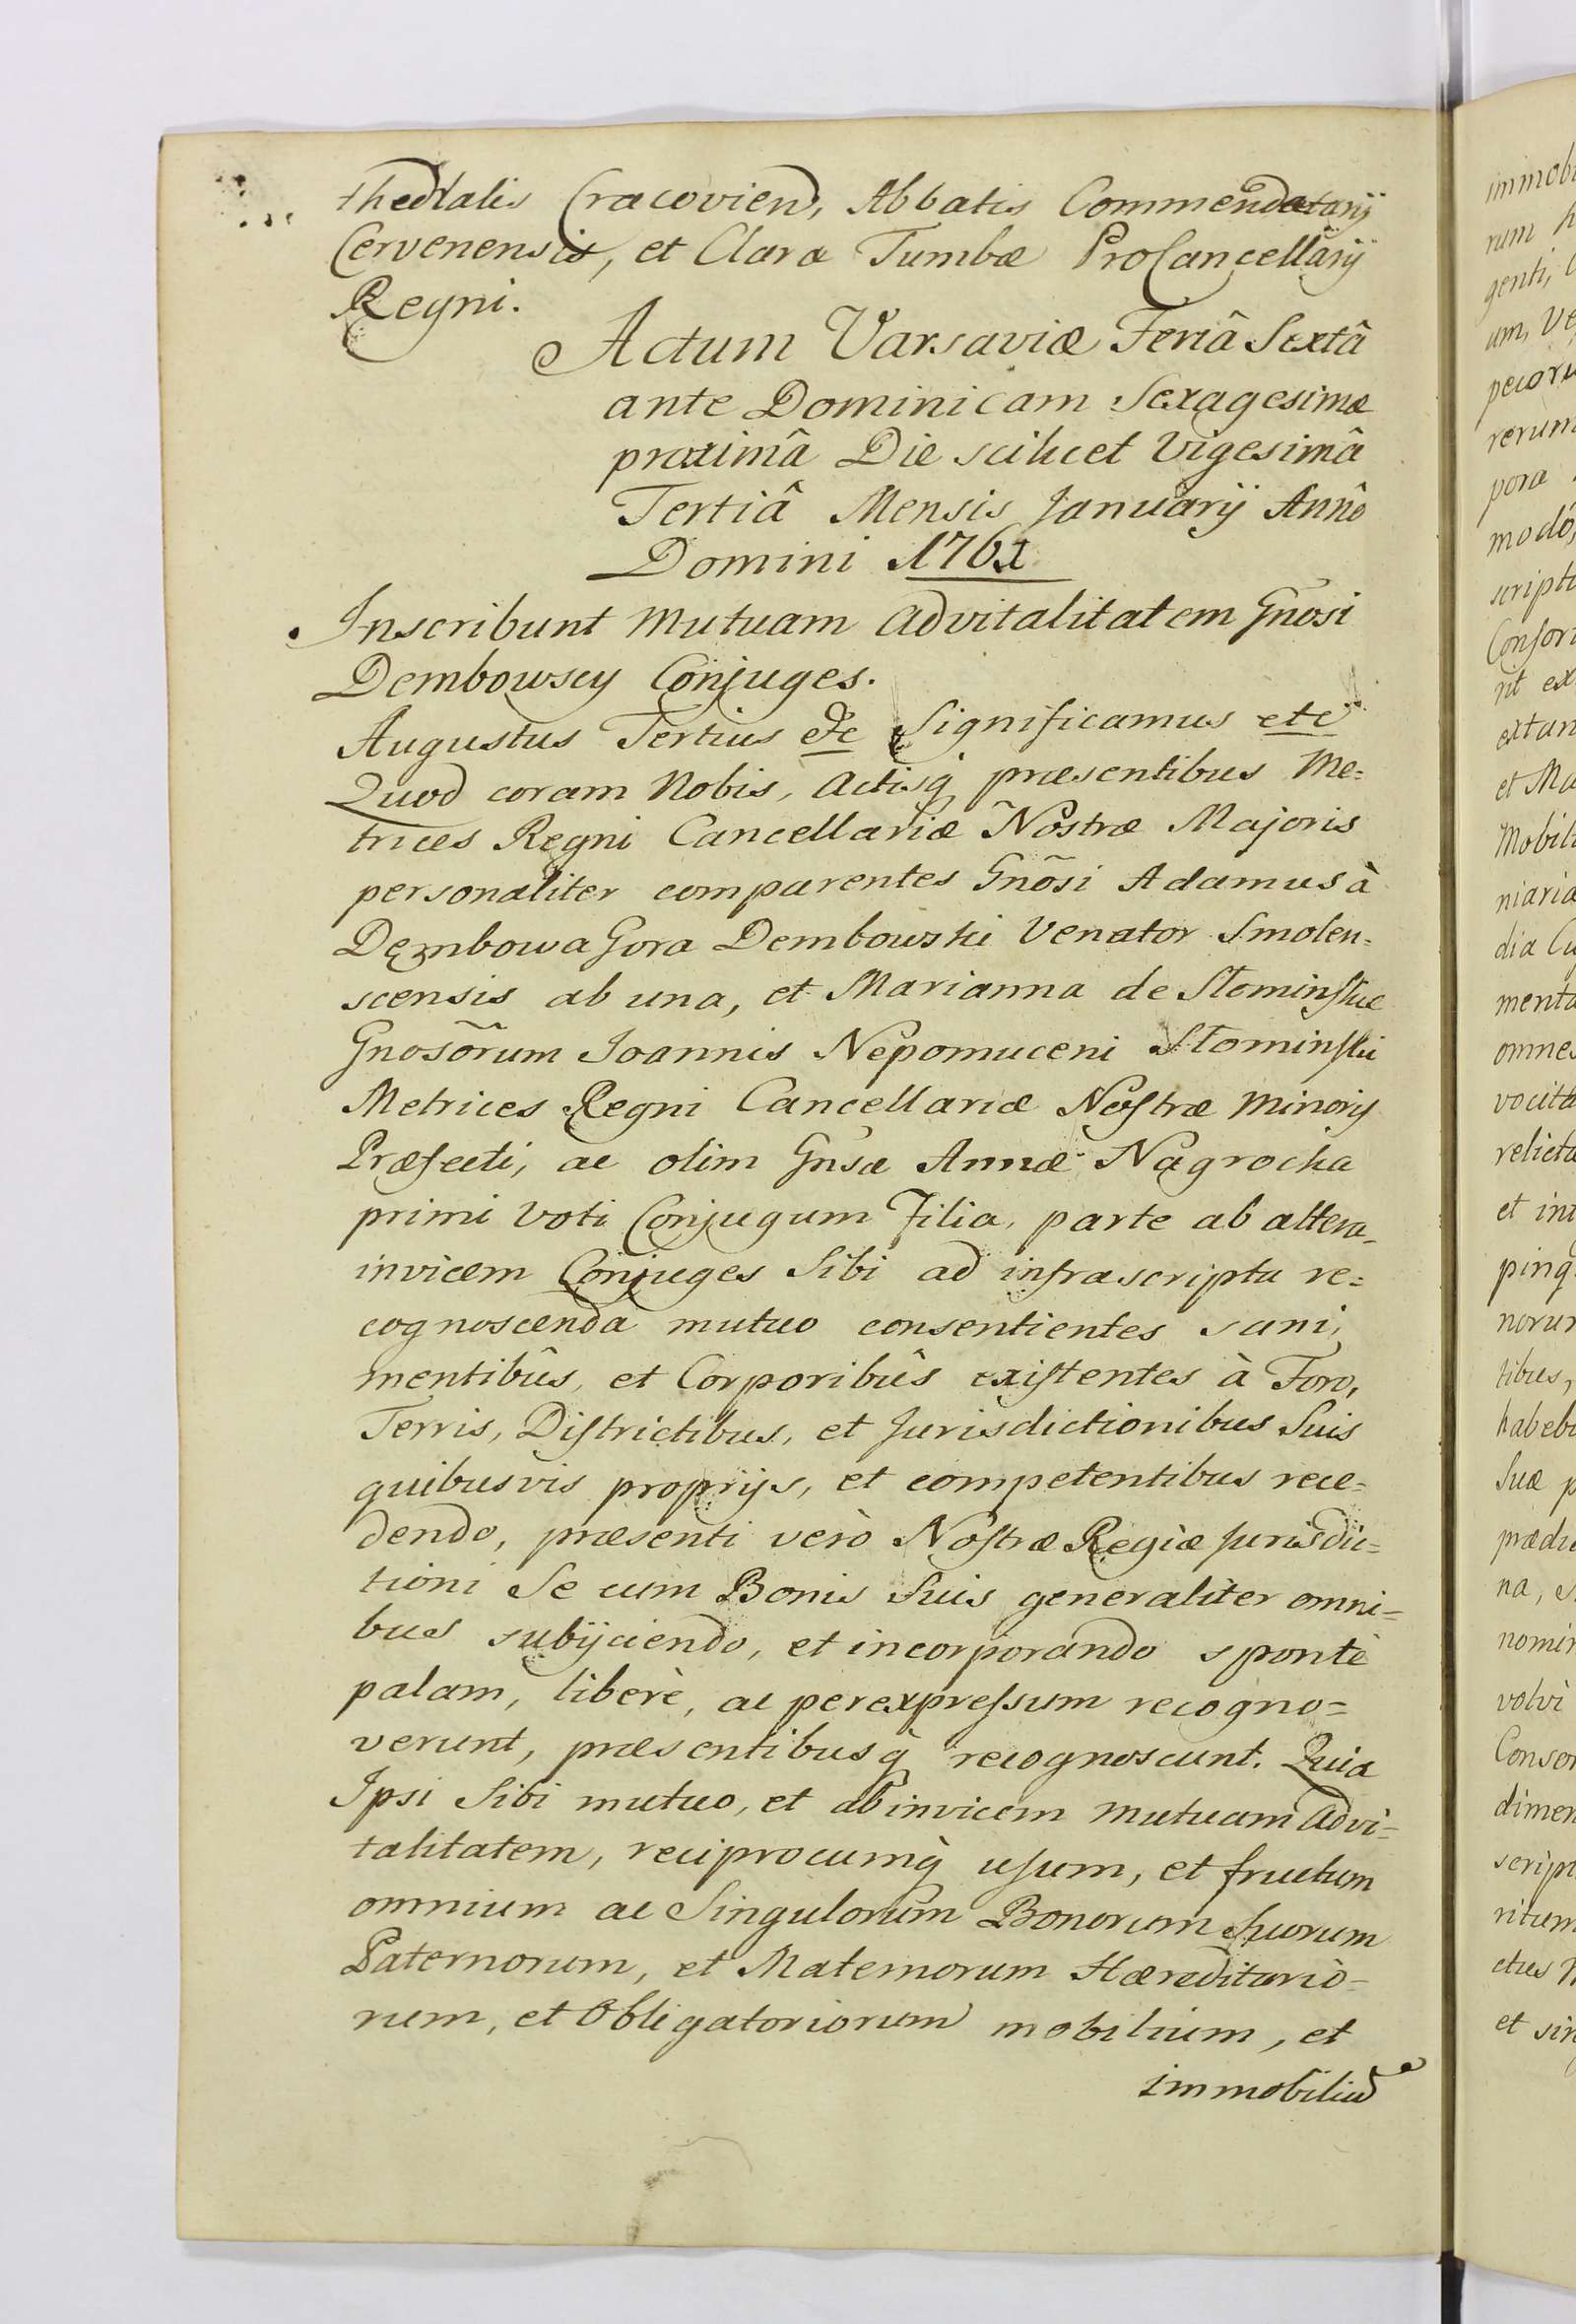 thedralis Cracovien, Abbatis Commendatarij
Cervenensis, et Claræ Tumbæ ProCancellarij
Regni.
Actum Varsaviæ Feriâ Sextâ
ante Dominicam Sexagesimæ
proximâ Die scilicet Vigesimâ
Tertiâ Mensis Januarij Annô
Domini 1761
Inscribunt Mutuam Advitalitatem Gnosi
Dembowscy Conjuges.
Augustus Tertius etc Significamus etc
Quod coram Nobis, Actisq́ præsentibus Me=
trices Regni Cancellariæ Nostræ Majoris
personaliter comparentes Gnõsi Adamus à
Dęmbowa Gora Dembowski Venator Smolen=
scensis ab una, et Marianna de Słominskie
Gnosõrum Joannis Nepomuceni Słominski
Metrices Regni Cancellariæ Nostræ Minoris
Præfecti, ac olim Gnsæ Annæ Nagrocka
primi Voti Conjugum Filia, parte ab altera
invicem Conjuges Sibi ad infrascripta re=
cognoscenda mutuo consentientes sani,
mentibûs, et Corporibûs existentes à Foro,
Terris, Districtibus, et Jurisdictionibus Suis
quibusvis proprijs, et competentibus rece=
dendo, præsenti verò Nostræ Regiæ Jurisdic=
tioni Se cum Bonis Suis generaliter omni=
bus subijciendo, et incorporando spontè
palam, liberè, ac per expressum recogno=
verunt, præsentibusq́ recognoscunt. Quia
Ipsi Sibi mutuo, et ab invicem mutuam Advi=
talitatem, reciprocumq́ usum, et fructum
omnium ac Singulorum Bonorum Suorum
Paternorum, et Maternorum Hæreditario=
rum, et Obligatoriorum mobilium, et
immobiliũ